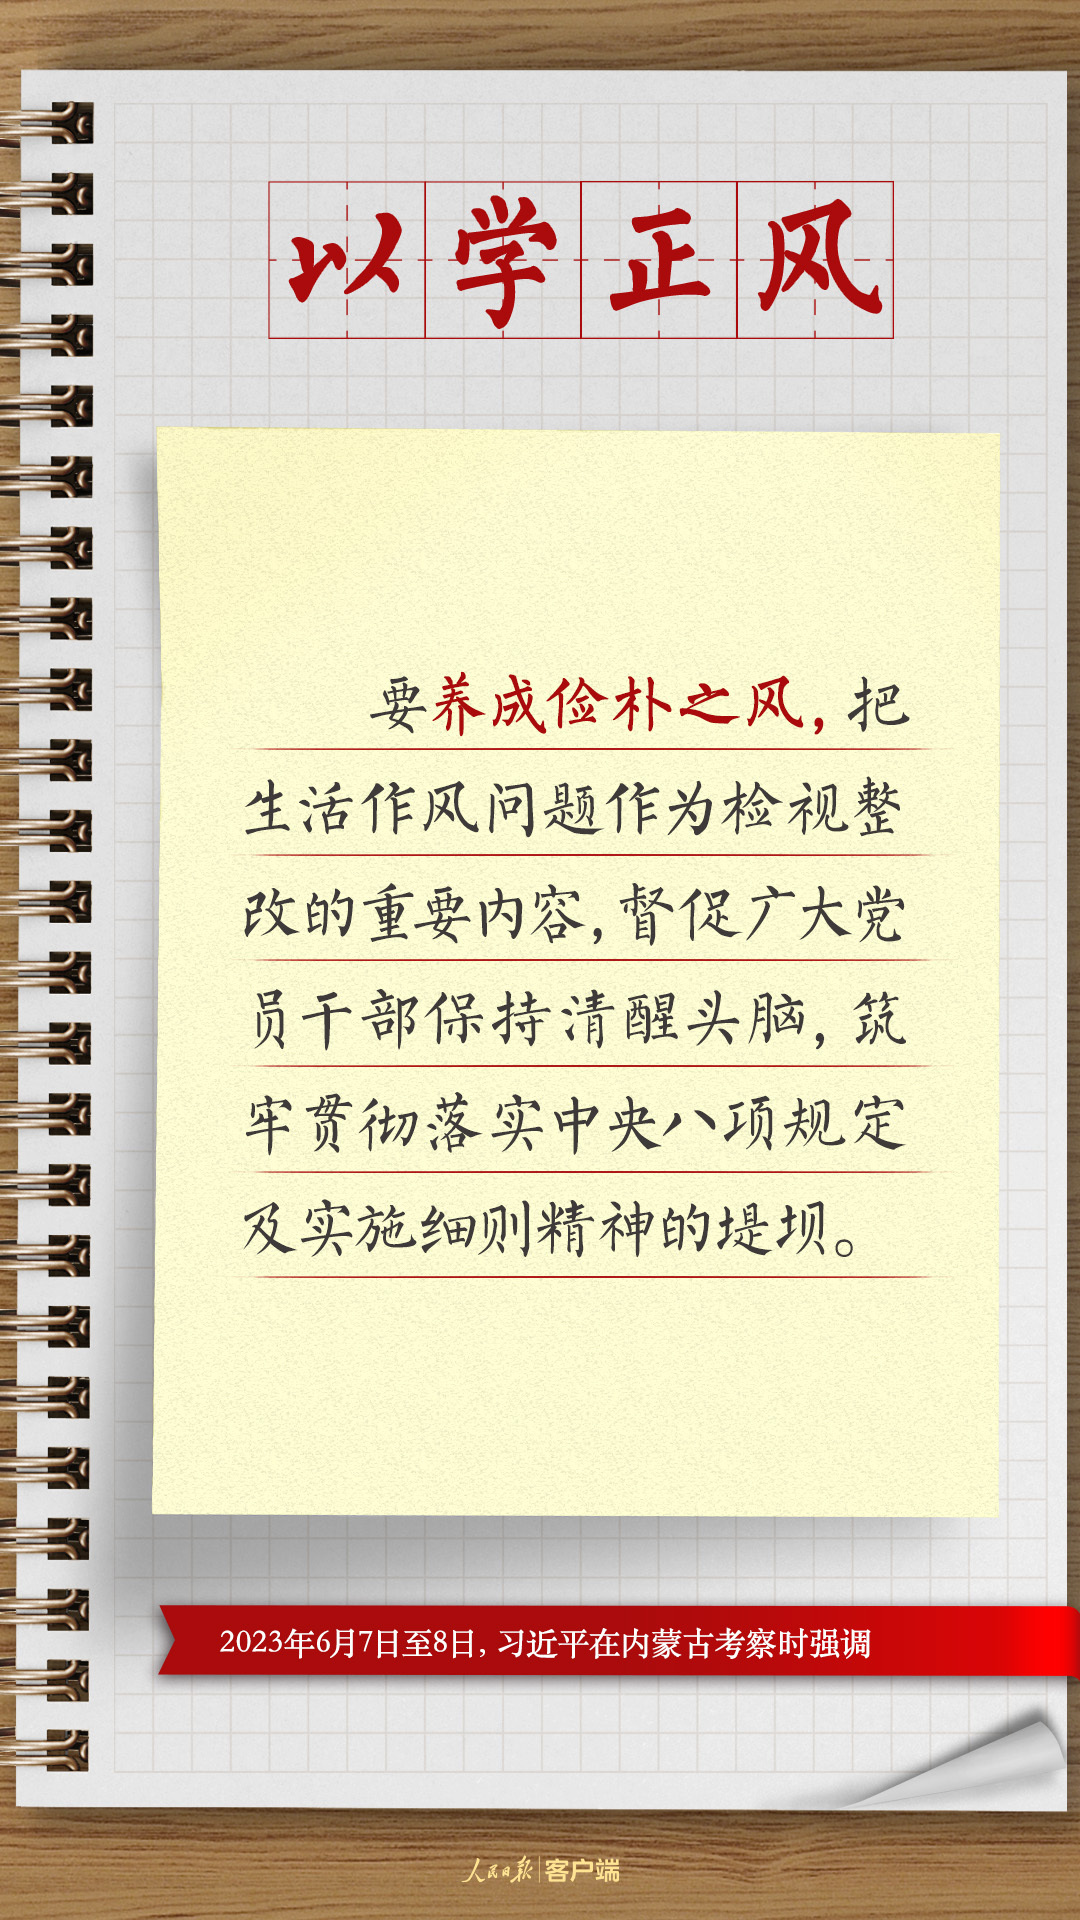 以学正风
要养成俭朴之风，把
生活作风问题作为检视整
改的重要内容，督促广大党
员干部保持清醒头脑，筑
牢贯彻落实中央八项规定
及实施细则精神的堤坝。
2023年6月7日至8日，习近平在内蒙古考察时强调
人民日报|客户端